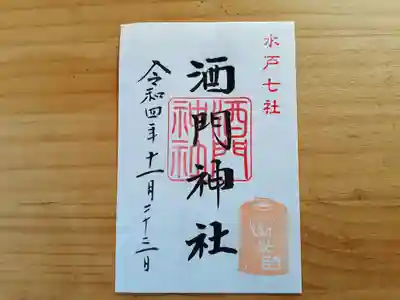 水戸七社
酒門神社
酒門
神社
令和四年十一月二十三日